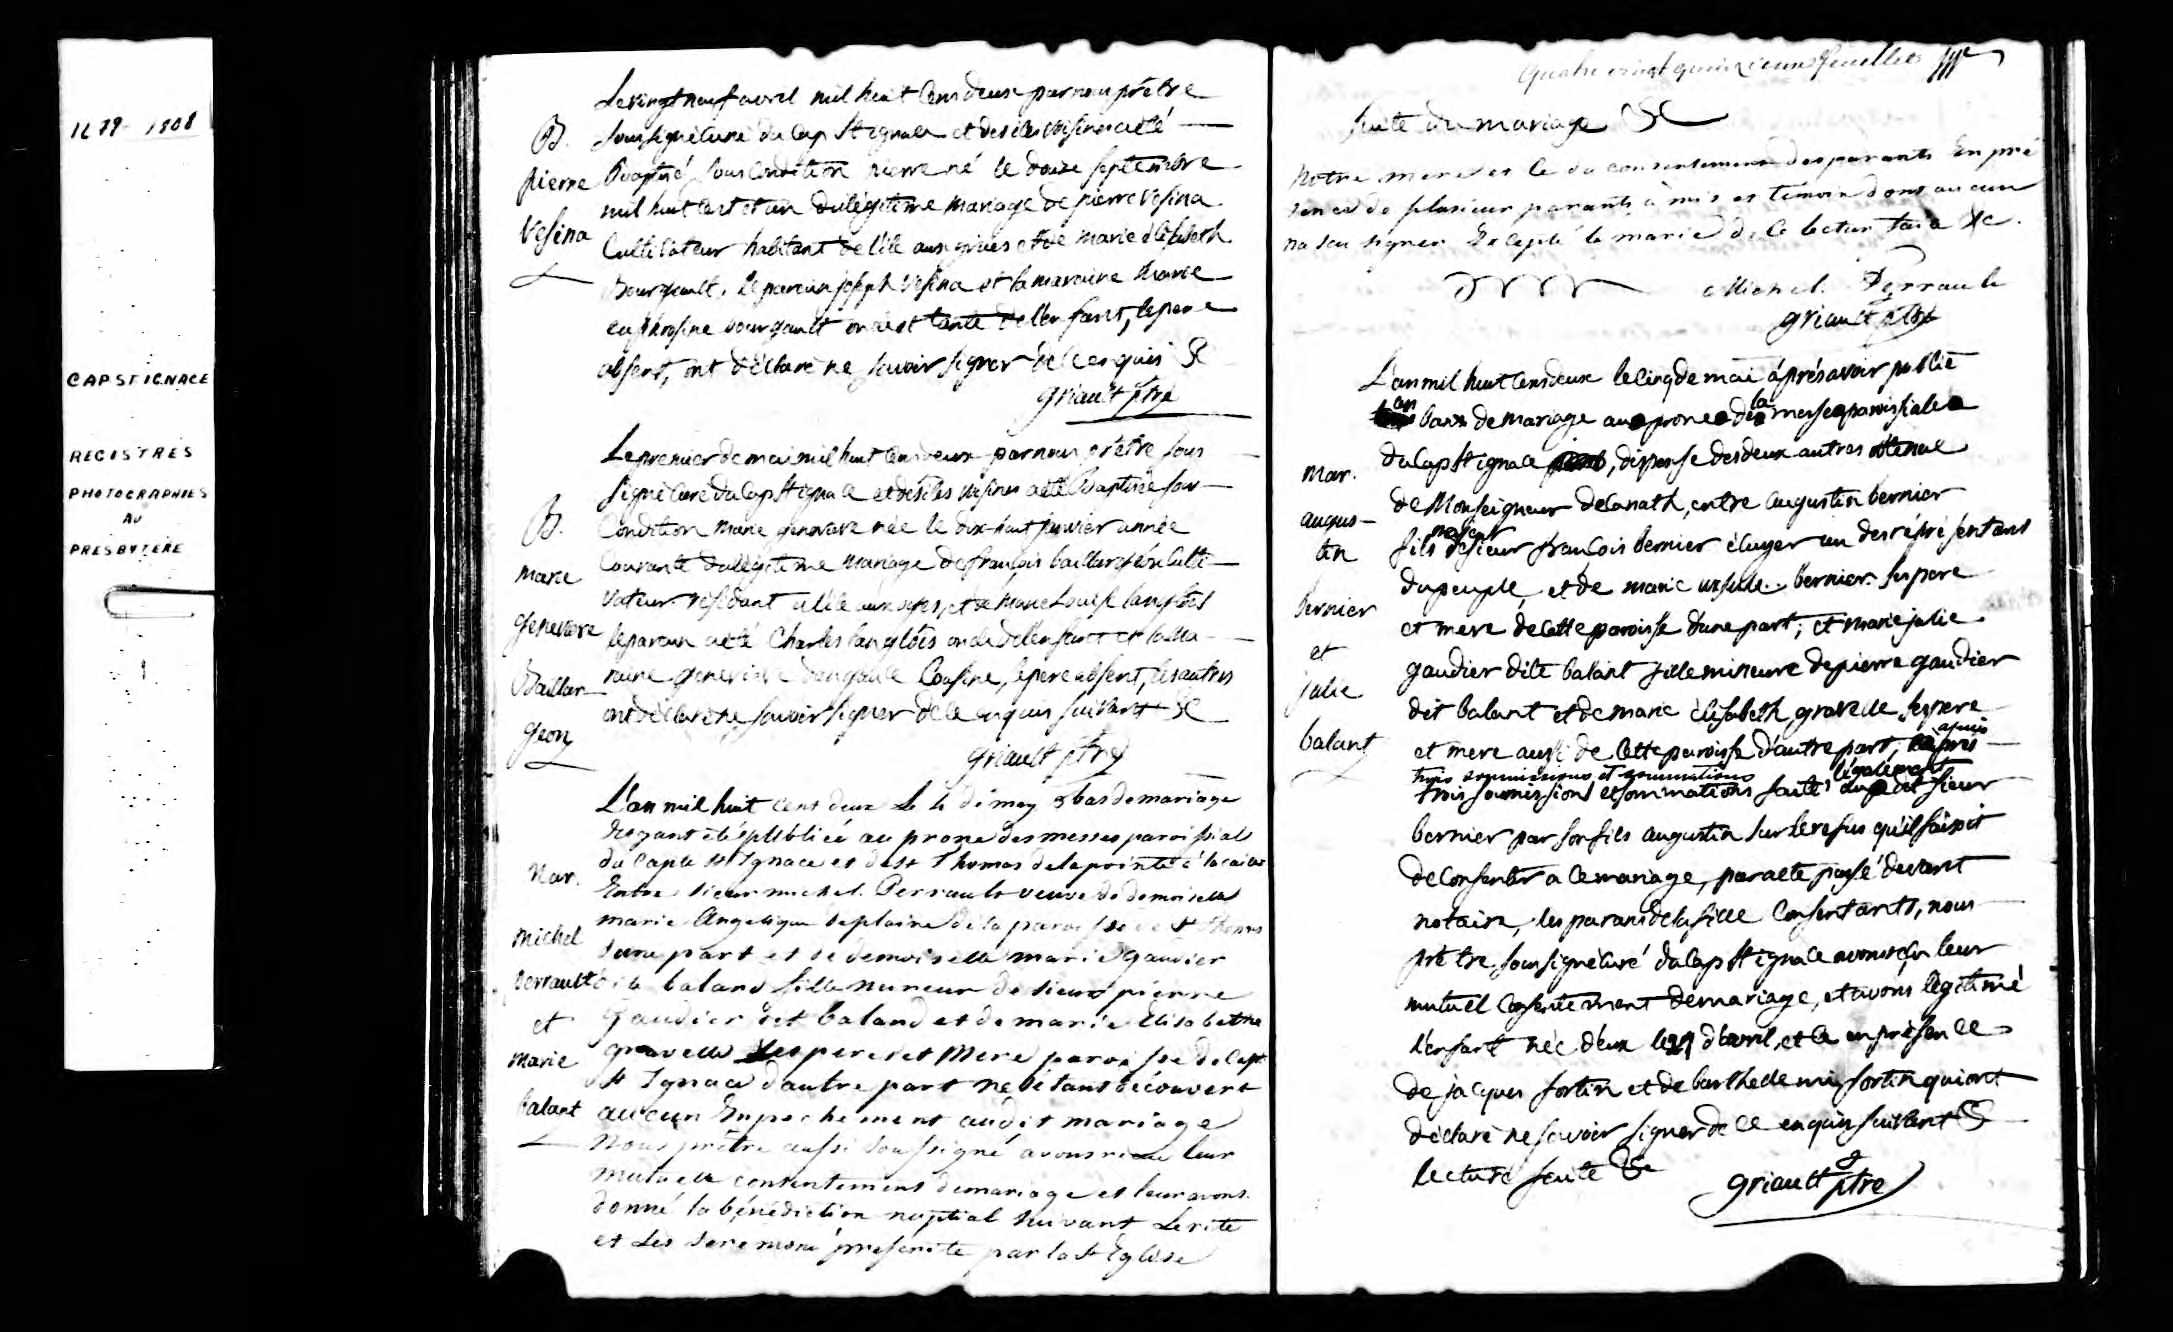 1679-1808
CAP ST IGNACE
REGISTRES
PHOTOGRAPHIES
AU
PRESBYTERE
B.
pierre
Vesina
Le vingt neuf avril mil huit cens deux par nous prêtre
soussigné curé du Cap St ignace et des iles voisines a eté
Baptisé sous condition pierre né le douze septembre
mil huit cent et un du légitime mariage de pierre Vesina
Cultivateur habitant de l'ile aux grues et de marie Elisabeth
Bourgault. le parain joseph Vesina et la maraine marie
euphrosine bourgault oncle et tante de l'enfant, le pere
absent, ont déclaré ne savoir signer de ce enquis &c
griault ptre
B.
marie
genevieve
Vaillan
geon
Le premier de mai mil huit cens deux par nous prêtre sous
signé curé du Cap St ignace et des iles voisines a eté Baptisée sou
Condition marie genevieve née le dix-huit janvier année
Courante du légitime mariage de françois vaillangeon culti
vateur résidant a l'ile aux oyes, et de marie Louise langlois
le parain a eté Charles langlois oncle de l'enfant et la ma-
raine genevieve Cousine, le pere absent, les autres
ont déclaré ne savoir signer de ce enquis suivant &c
griault ptre
Mar.
michel
perrault
et
marie
balant
L'an mil huit cent deux le 4 de may 3 bas de mariage
ayant été publiée au prone des messes paroissial
du Cap de st Ignace et de st Thomas de la pointe à la caille
Entre sieur michel Perrault veuve de demoiselle
marie Angelique de la paroisse de st Thomas
d'une part et de demoiselle marie gaudier
dite baland fille mineur de sieur pierre
Gaudier dit baland et de marie Elisabethe
gravelle ses pere et mere paroisse de Cap
st Ignace d'autre part ne s'étant découvert
aucun Enpechement audit mariage
nous prêtre aussi soussigné avons recue leur
mutuelle consentement de mariage et leur avons
donné la bénédiction nuptial suivant le rite
et les seremoni prescrite par la st Eglise
quatre vingt quinzieme feuillet
Suite du mariage &c
notre mere et ce du consentement des parants En pré
sence de plusieur parants amis et témoin dont aucun
na seu signer Excepté le marié de ce lectur faia &c.
Michel Perrault
griault ptre
Mar.
augus-
tin
bernier
et
julie
balant
L'an mil huit cens deux le cinq de mai aprés avoir publié
un ban de mariage au prone de la messe paroissiale
du Cap St ignace, dispense des deux autres obtenue
de Monseigneur de Canath, entre augustin bernier
fils majeur de sieur françois bernier écuyer un des représentans
du peuple, et de marie ursule bernier ses pere
et mere de cette paroisse d'une part; et marie julie
gaudier dite balant fille mineure de pierre gaudier
dit balant et de marie élisabeth gravelle ses pere
et mere aussi de cette paroisse d'autre part, aprés
trois soumissions et sommations
trois soumissions et sommations faites légalement au dit sieur
bernier par son fils augustin sur le refus qu'il faisoit
de consentir a ce mariage, par acte passé devant
notaire, les parans de la fille consentants, nous
prêtre soussigné curé du Cap St ignace avons reçu leur
mutuel consentement de mariage, et avons légitimé
l'enfant née d'eux le 29 d'avril, et ce en présence
de jacques fortin et de barthelemi fortin qui ont
déclaré ne savoir signer de ce enquis suivant &
lecture faite &c
griault ptre